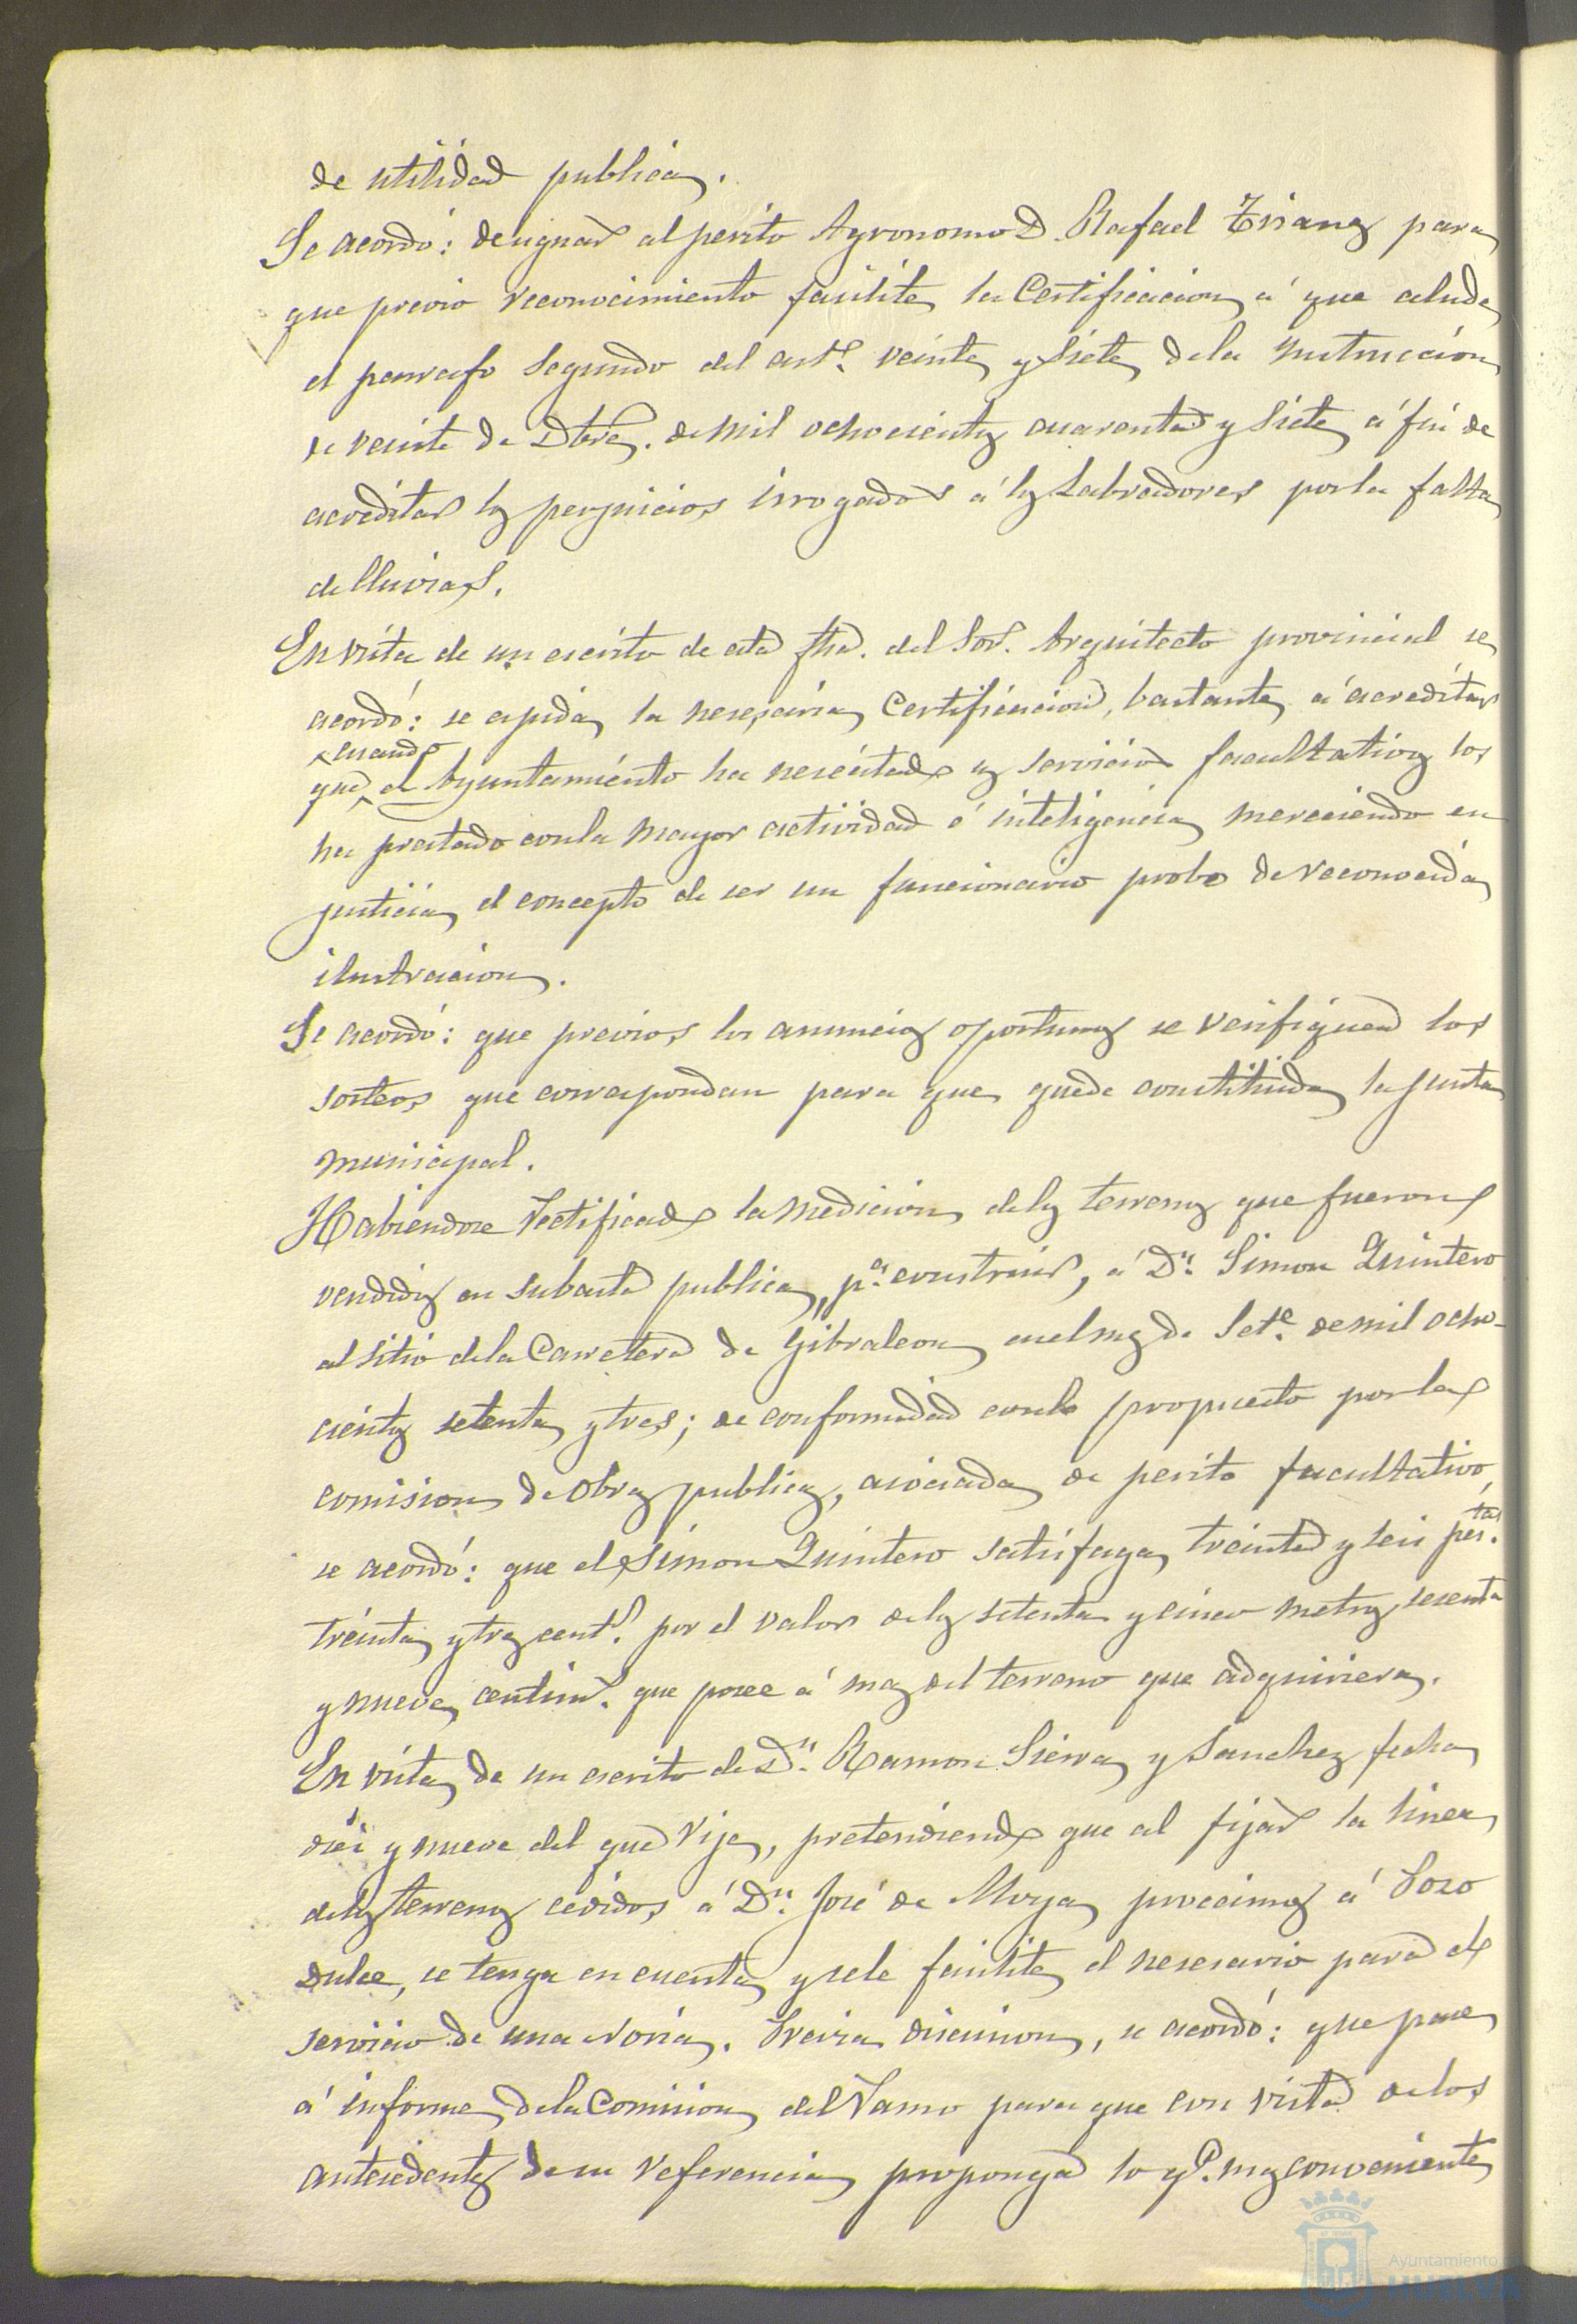 de utilidad publica.
Se acordó: designar al perito Agronomo D. Rafael Triana para
que previo reconocimiento facilite la Certificacion á que alude
el parrafo segundo del artº. veinte y siete de la instruccion
de veinte de Dbre. de mil ochocientos cuarenta y siete á fin de
acreditar los perjuicios irrogados á los Labradores por la falta
de lluvias.
En vista de un escrito de esta fha. del Sor. Arquitecto provincial se
acordó: se espida la nesesaria Certificacion, bastante á acreditar
cuando
que el Ayuntamiento ha nesecitado sus servicios facultativos los
ha prestado con la mayor actividad é inteligencia mereciendo en
justicia el concepto de ser un funcionario probo de reconocida
ilustracion.
Se acordó: que previos los anuncios oportunos se verifiquen los
sorteos que correspondan para que quede constituida la Junta
municipal.
Habiendose rectificado la medicion de los terrenos que fueron
vendidos en subasta publica, pª. construir, á Dn. Simon Quintero
al sitio de la Carretera de Gibraleon en el mes de Sete. de mil ocho-
cientos setenta y tres; de conformidad con lo propuesto por la
comision de obras publicas, asociada de perito facultativo,
se acordó: que el Simon Quintero satisfaga treinta y seis pestas.
treinta y tres cents. por el valor de los setenta y cinco metros sesenta
y nueve centims. que posee á mas del terreno que adquiriera.
En vista de un escrito de Dn. Ramon Sierra y Sanchez fecha
diez y nueve del que rije, pretendiendo que al fijar la linea
de los terrenos cedidos á Dn. José de Moya procsimos á Pozo
Dulce, se tenga en cuenta y se le facilite el nesesario para el
servicio de una Noria. Previa discusion, se acordó: que pase
á informe de la Comision del Ramo para que con vista de los
antesedentes de su referencia proponga lo q. mas conveniente
Ayuntamiento
HUELVA